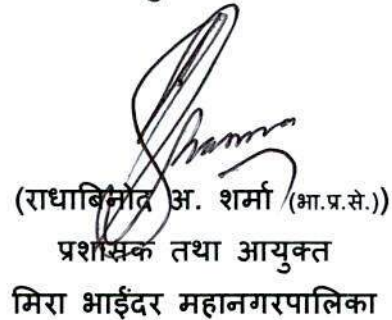 Sharma
(राधाबिनोद अ. शर्मा (भा.प्र.से.))
प्रशासक तथा आयुक्त
मिरा भाईंदर महानगरपालिका